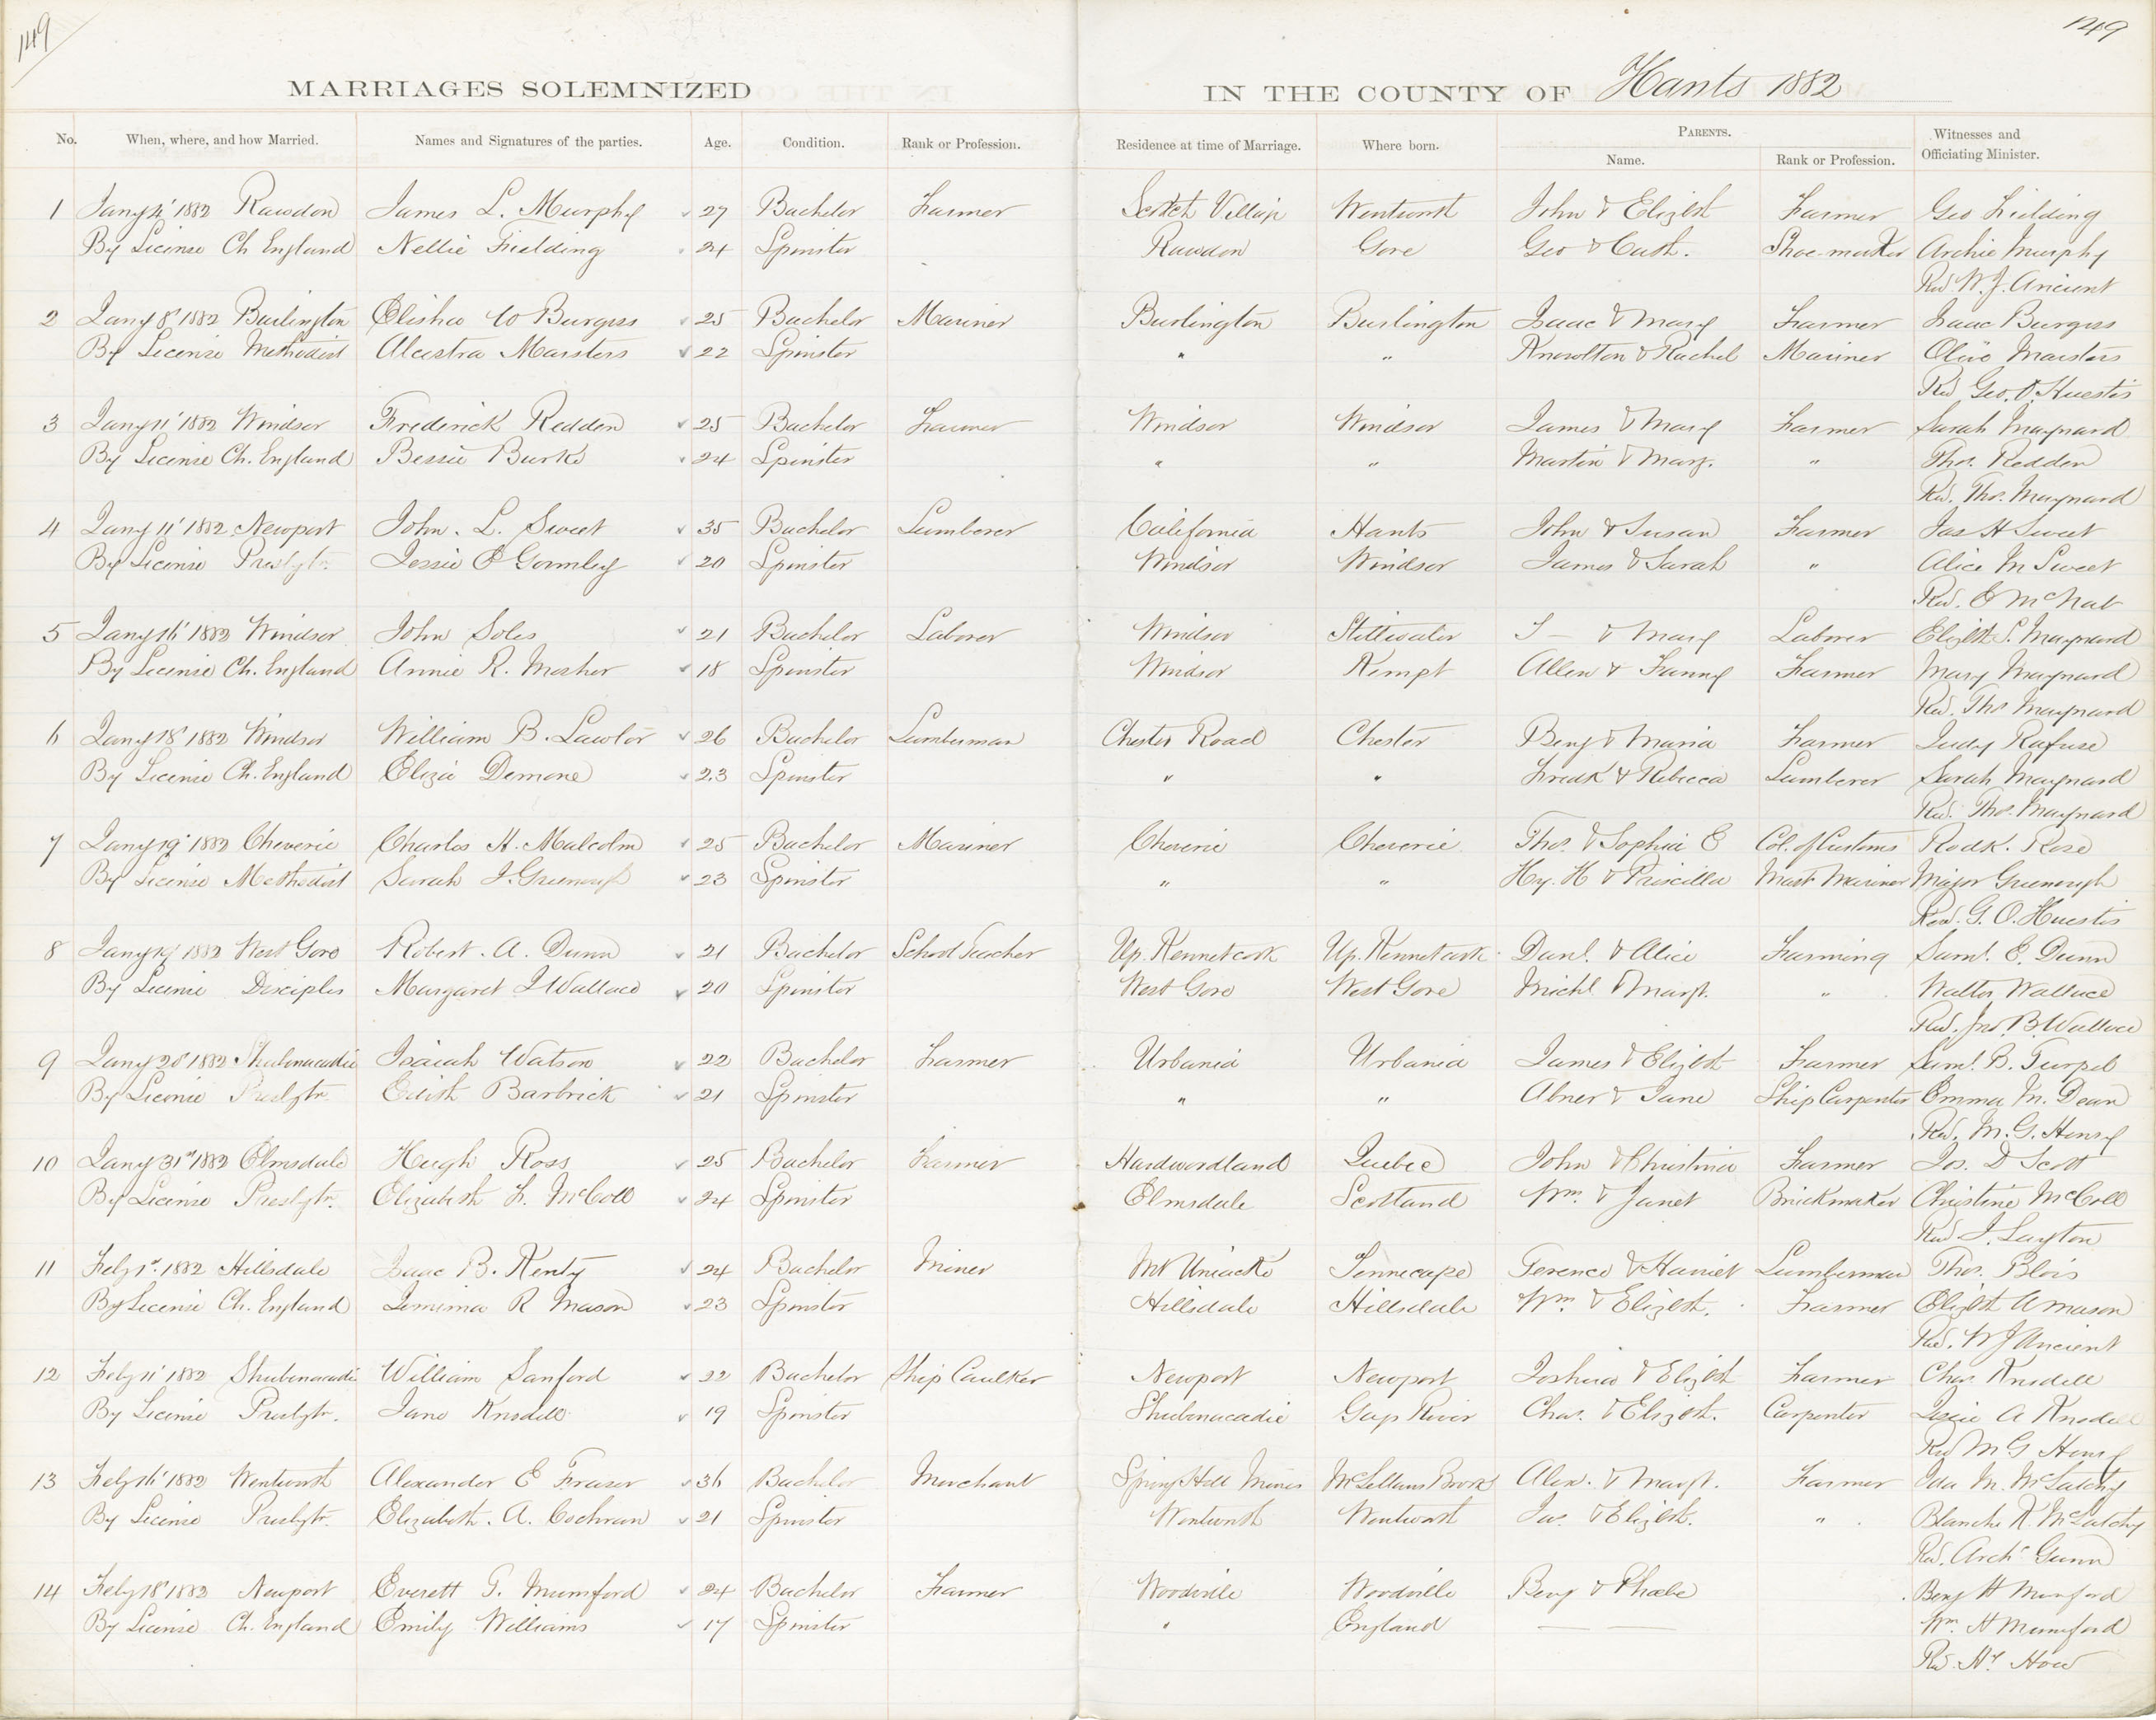 149
149
MARRIAGES SOLEMNIZED IN THE COUNTY OF Hants 1882
No. When, where, and how Married. Names and Signatures of the parties. Age. Condition. Rank or Profession. Residence at time of Marriage. Where born. PARENTS. Name. Rank or Profession. Witnesses and Officiating Minister.
1 Jany 4' 1882 Rawdon James L. Murphy 27 Bachelor Farmer Scotch Village Wentworth John & Elizbt Farmer Geo Fielding
By License Ch England Nellie Fielding 24 Spinster Rawdon Gore Geo & Cath. Shoe-maker Archie Murphy
Rev. W. J. Ancient
2 Jany 8' 1882 Burlington Elisha W Burgess 25 Bachelor Mariner Burlington Burlington Isaac & Mary Farmer Isaac Burgess
By License Methodist Alcestra Marsters 22 Spinster " " Knowlton & Rachel Mariner Marsters
Rev Geo. O. Huestis
3 Jany 11' 1882 Windsor Frederick Redden 25 Bachelor Farmer Windsor Windsor James & Mary Farmer Sarah Maynard
By License Ch. England Bessie Burke 24 Spinster " " Martin & Mary. " Thos. Redden
Rev. Thos. Maynard
4 Jany 11' 1882 Newport John. L. Sweet 35 Bachelor Lumberer California Hants John & Susan Farmer Jas H Sweet
By License Presbytr. Jessie O'Gormley 20 Spinster Windsor Windsor James & Sarah " Alice M Sweet
Rev. E McNab
5 Jany 16' 1882 Windsor John Soles 21 Bachelor Laborer Windsor Stillwater J — & Mary Laborer Elizbth S. Maynard
By License Ch. England Annie R. Mosher 18 Spinster Windsor Kempt Allen & Fanny Farmer Mary Maynard
Rev. Thos Maynard
6 Jany 18' 1882 Windsor William B. Lawlor 26 Bachelor Lumberman Chester Road Chester Benj & Maria Farmer Judy Rafuse
By License Ch. England Eliza Demone 23 Spinster " " Fredk & Rebecca Lumberer Sarah Maynard
Rev. Thos. Maynard
7 Jany 19' 1882 Cheverie Charles H. Malcolm 25 Bachelor Mariner Cheverie Cheverie Thos. & Sophia E Col. of Customs Rodk. Rose
By License Methodist Sarah J. Greenough 23 Spinster " " Hy. H & Priscilla Mast Mariner Major Greenough
Rev. G. O. Huestis
8 Jany 19' 1882 West Gore Robert. A. Dunn 21 Bachelor School Teacher Up. Kennetcook Up. Kennetcook Danl. & Alice Farming Saml. E. Dunn
By License Disciples Margaret J Wallace 20 Spinster West Gore West Gore Michl. & Margt. " Walter Wallace
Rev. Jno. B. Wallace
9 Jany 28' 1882 Shubenacadie Isaiah Watson 22 Bachelor Farmer Urbania Urbania James & Elizbt Farmer Saml. B. Turpel
By License Presbytr. Edith Barbrick 21 Spinster " " Abner & Jane Ship Carpenter Emma M. Dean
Rev. M. G. Henry
10 Jany 31st 1882 Elmsdale Hugh Ross 25 Bachelor Farmer Hardwoodland Quebec John & Christina Farmer Jos. D Scott
By License Presbytr. Elizabeth F. McColl 24 Spinster Elmsdale Scotland Wm. & Janet Brickmaker Christine McColl
Rev J. Layton
11 Feby 1st. 1882 Hillsdale Isaac B. Kenty 24 Bachelor Miner Mt Uniacke Tennecape Terence & Harriet Lumberman Thos. Blois
By License Ch. England Jemima R Mason 23 Spinster Hillsdale Hillsdale Wm. & Elizbt. Farmer Elizbt A Mason
Rev. W J Ancient
12 Feby 11' 1882 Shubenacadie William Sanford 22 Bachelor Ship Caulker Newport Newport Joshua & Elizbt Farmer Chas. Knodell
By License Presbytr. Jane Knodell 19 Spinster Shubenacadie Gays River Chas. & Elizbt. Carpenter A Knodell
Rev M G Henry
13 Feby 16' 1882 Wentworth Alexander E Fraser 36 Bachelor Merchant Spring Hill Mines McLellans Brook Alex. & Margt. Farmer Ida M. McLatchy
By License Presbytr. Elizabeth. A. Cochran 21 Spinster Wentworth Wentworth Jas. & Elizbt. " Blanche R. McLatchy
Rev. Archd Gunn
14 Feby 18' 1882 Newport Everett G. Mumford 24 Bachelor Farmer Woodville Woodville Benj & Phoebe Benj H Mumford
By License Ch. England Emily Williams 17 Spinster " England — — Wm. H Mumford
Rev. Hy. How